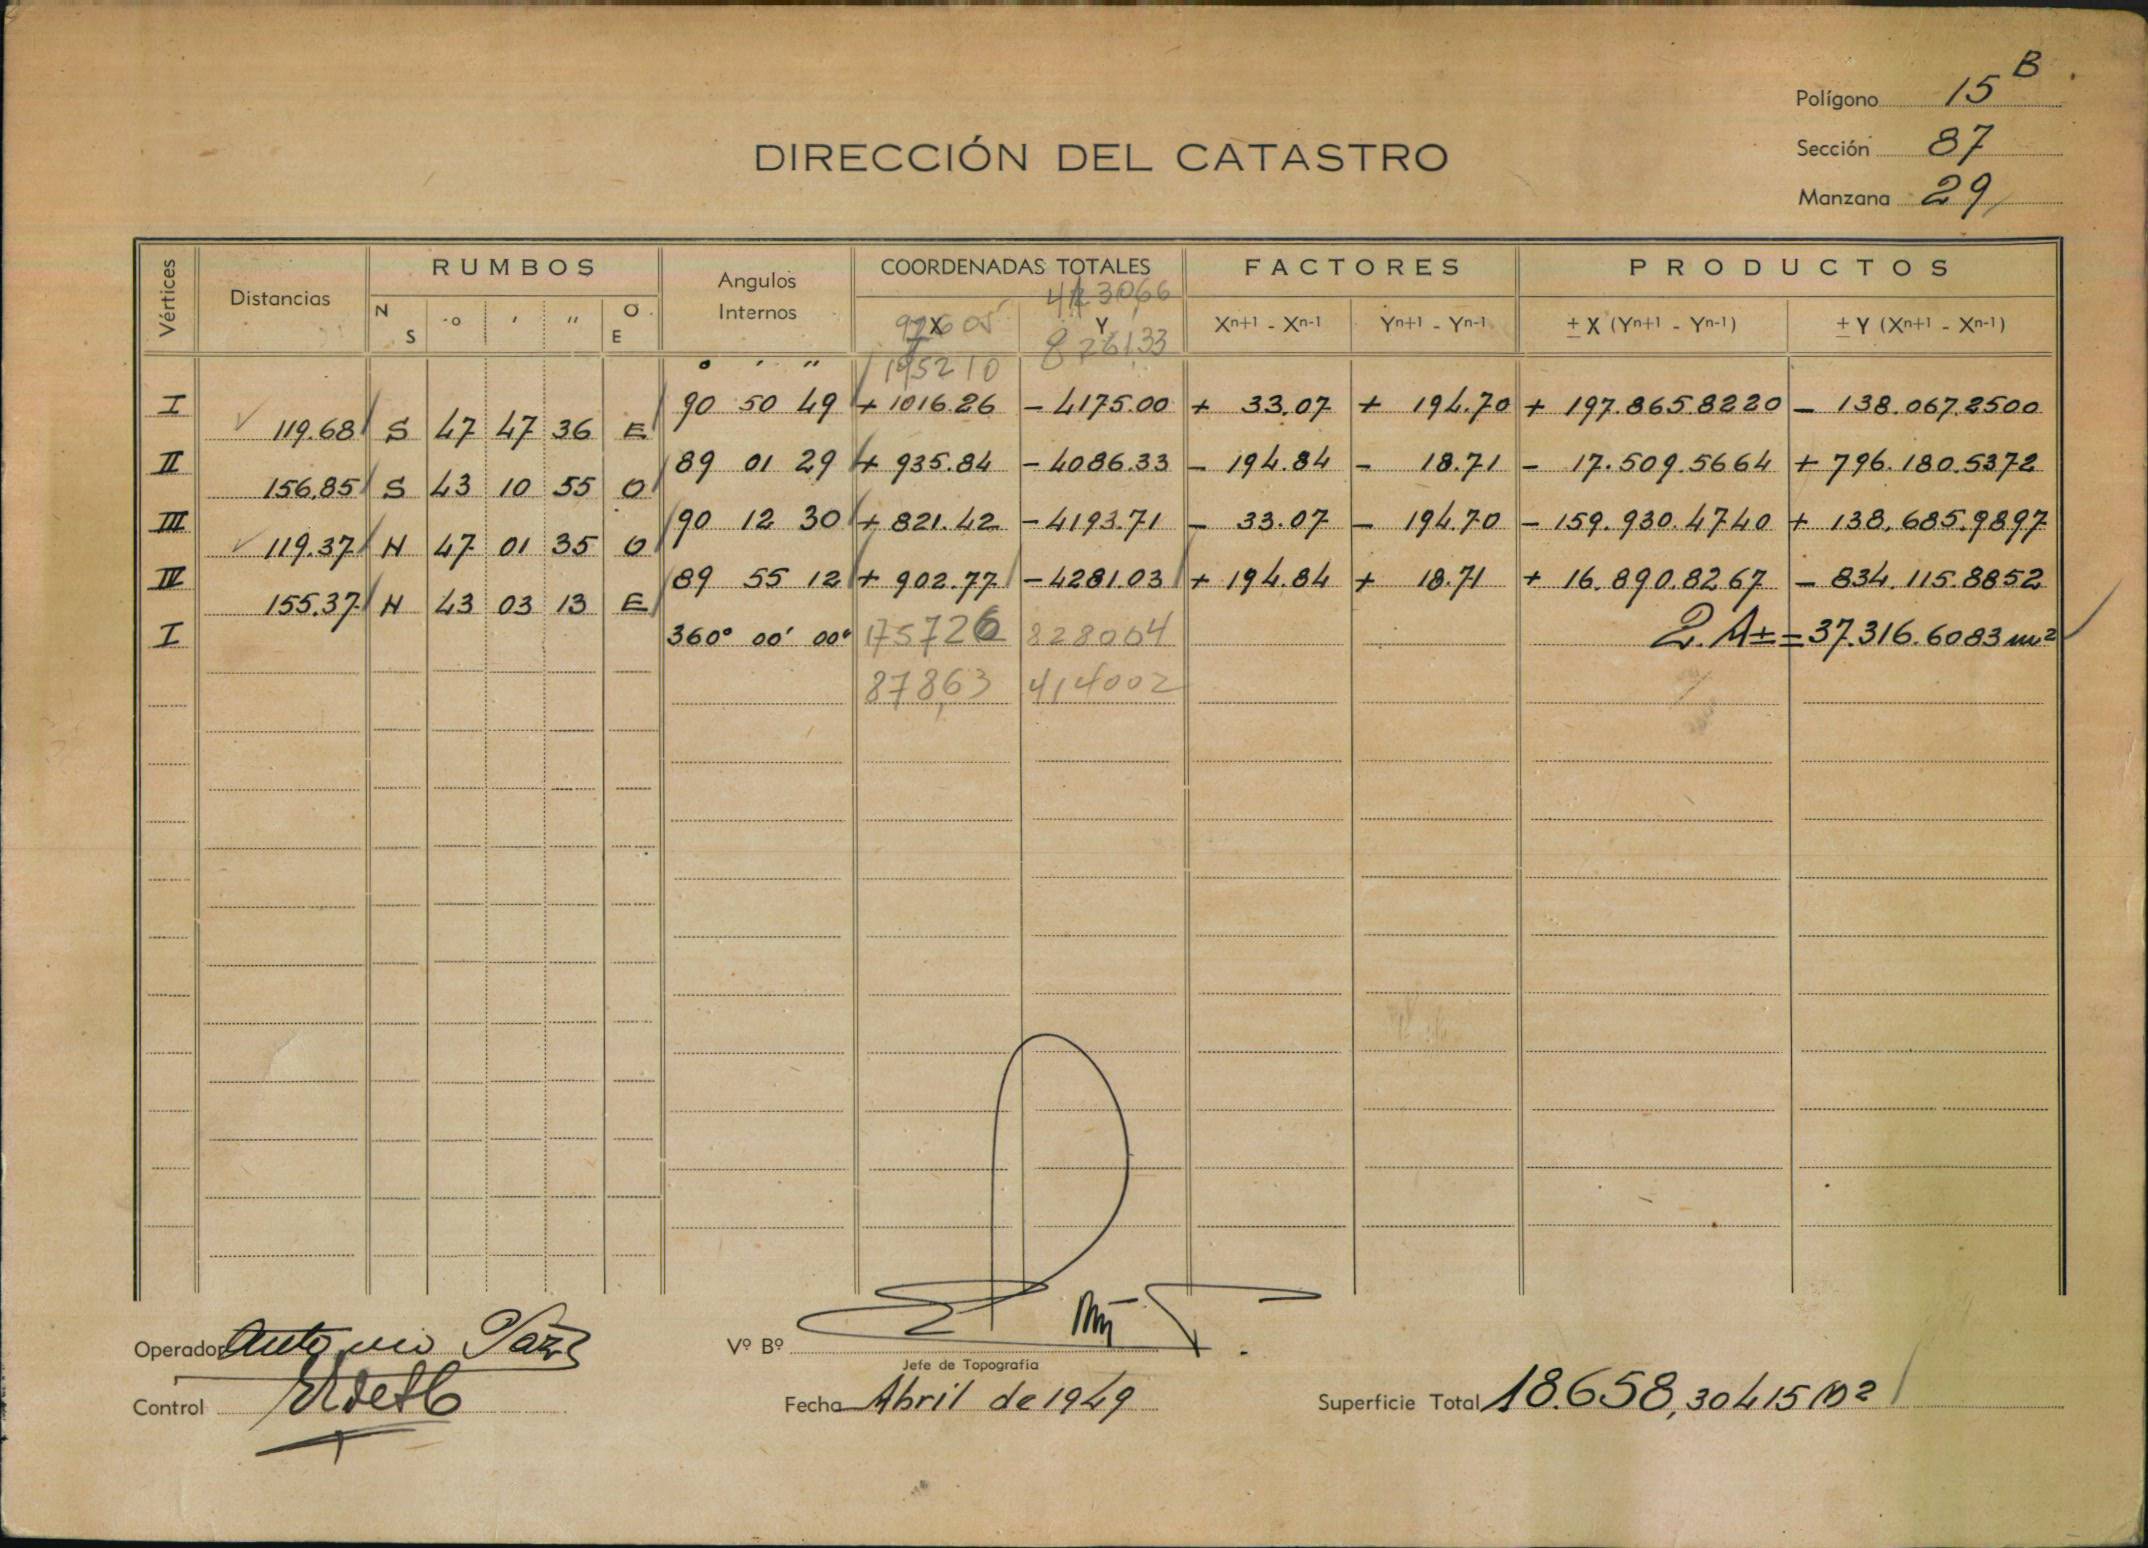 Polígono 15 B
DIRECCIÓN DEL CATASTRO
Sección 87
Manzana 29
Vértices
Distancias
RUMBOS
N S
o ' "
O E
Angulos Internos
COORDENADAS TOTALES
413066
X Y
97605 826133
195210
FACTORES
Xn+1 - Xn-1 Yn+1 - Yn-1
PRODUCTOS
± X (Yn+1 - Yn-1) ± Y (Xn+1 - Xn-1)
o ' "
I 90 50 49 + 1016.26 - 4175.00 + 33.07 + 194.70 + 197.865.8220 - 138.067.2500
119.68 S 47 47 36 E
II 89 01 29 + 935.84 - 4086.33 - 194.84 - 18.71 - 17.509.5664 + 796.180.5372
156.85 S 43 10 55 O
III 90 12 30 + 821.42 - 4193.71 - 33.07 - 194.70 - 159.930.4740 + 138.685.9897
119.37 N 47 01 35 O
IV 89 55 12 + 902.77 - 4281.03 + 194.84 + 18.71 + 16.890.8267 - 834.115.8852
155.37 N 43 03 13 E
I 360° 00' 00" 175726 828004 2.A± = 37.316.6083 m²
87863 414002
Operador Antonio
Vº Bº
Jefe de Topografía
Control
Fecha Abril de 1949
Superficie Total 18.658,30415 m2